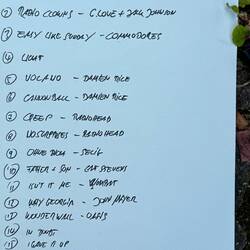 ② RADIO CLOWNS - G.LOVE + JACK JOHNSON
③ EASY LIKE SUNDAY - COMMODORES
④ LIGHT
⑤ VOLCANO - DAMIEN RICE
⑥ CANNONBALL - DAMIEN RICE
⑦ CREEP - RADIOHEAD
⑧ NO SURPRISES - RADIOHEAD
⑨
⑩ FATHER + SON - CAT STEVENS
⑪ ISN'T IT ME -
⑫ WHY GEORGIA - JOHN MAYER
⑬ WONDERWALL - OASIS
⑭ IN
⑮ I GAVE IT UP